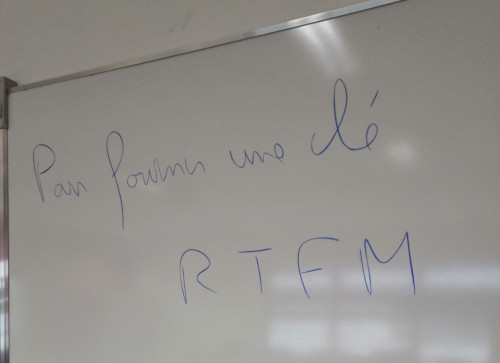 Pour fournir une clé
RTFM